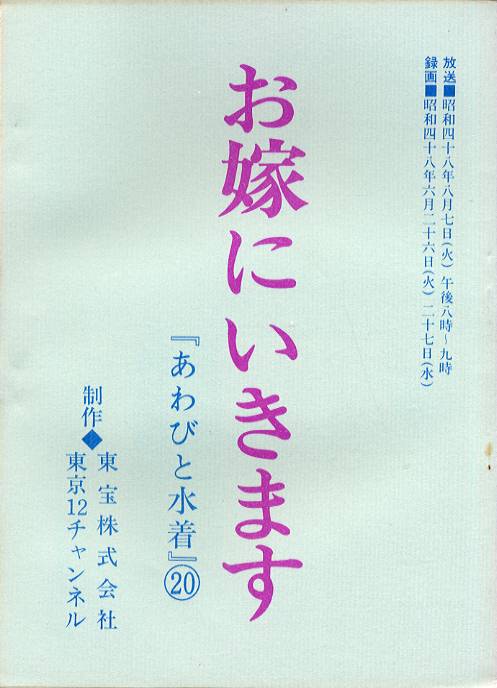 放送■昭和四十八年八月七日(火) 午後八時～九時
録画■昭和四十八年六月二十六日(火) 二十七日(水)
お嫁にいきます
『あわびと水着』⑳
制作◆東宝株式会社
東京12チャンネル